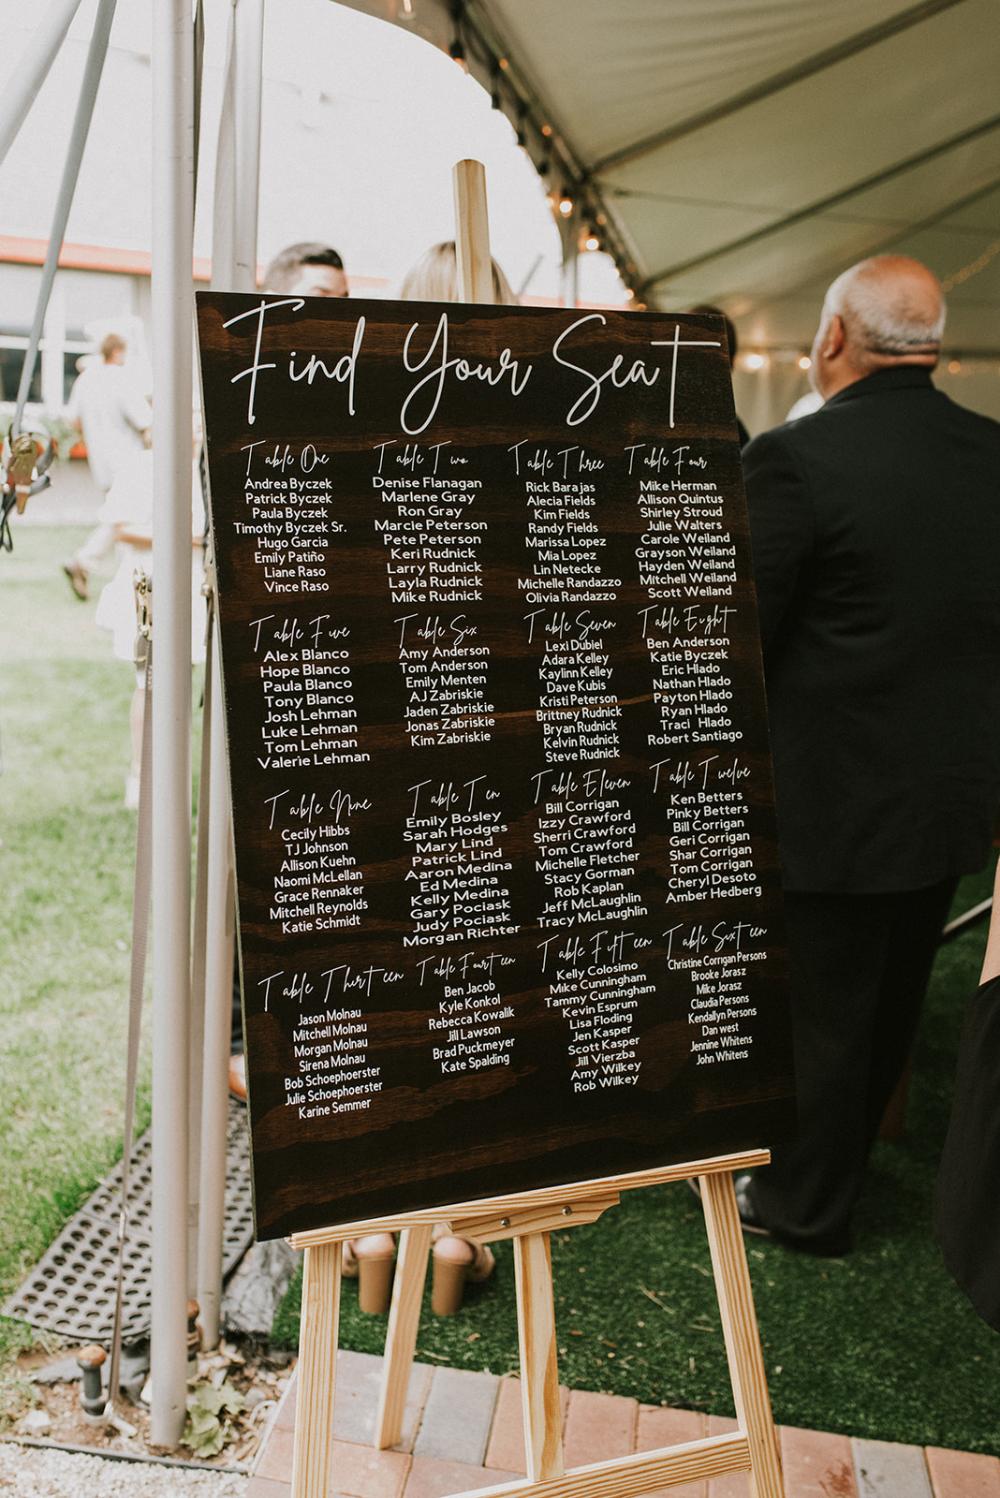 Find Your Seat
Table One
Andrea Byczek
Patrick Byczek
Paula Byczek
Timothy Byczek Sr.
Hugo Garcia
Emily Patiño
Liane Raso
Vince Raso
Table Two
Denise Flanagan
Marlene Gray
Ron Gray
Marcie Peterson
Pete Peterson
Keri Rudnick
Larry Rudnick
Layla Rudnick
Mike Rudnick
Table Three
Rick Barajas
Alecia Fields
Kim Fields
Randy Fields
Marissa Lopez
Mia Lopez
Lin Netecke
Michelle Randazzo
Olivia Randazzo
Table Four
Mike Herman
Allison Quintus
Shirley Stroud
Julie Walters
Carole Weiland
Grayson Weiland
Hayden Weiland
Mitchell Weiland
Scott Weiland
Table Five
Alex Blanco
Hope Blanco
Paula Blanco
Tony Blanco
Josh Lehman
Luke Lehman
Tom Lehman
Valerie Lehman
Table Six
Amy Anderson
Tom Anderson
Emily Menten
AJ Zabriskie
Jaden Zabriskie
Jonas Zabriskie
Kim Zabriskie
Table Seven
Lexi Dubiel
Adara Kelley
Kaylinn Kelley
Dave Kubis
Kristi Peterson
Brittney Rudnick
Bryan Rudnick
Kelvin Rudnick
Steve Rudnick
Table Eight
Ben Anderson
Katie Byczek
Eric Hlado
Nathan Hlado
Payton Hlado
Ryan Hlado
Traci Hlado
Robert Santiago
Table Nine
Cecily Hibbs
TJ Johnson
Allison Kuehn
Naomi McLellan
Grace Rennaker
Mitchell Reynolds
Katie Schmidt
Table Ten
Emily Bosley
Sarah Hodges
Mary Lind
Patrick Lind
Aaron Medina
Ed Medina
Kelly Medina
Gary Pociask
Judy Pociask
Morgan Richter
Table Eleven
Bill Corrigan
Izzy Crawford
Sherri Crawford
Tom Crawford
Michelle Fletcher
Stacy Gorman
Rob Kaplan
Jeff McLaughlin
Tracy McLaughlin
Table Twelve
Ken Betters
Pinky Betters
Bill Corrigan
Geri Corrigan
Shar Corrigan
Tom Corrigan
Cheryl Desoto
Amber Hedberg
Table Thirteen
Jason Molnau
Mitchell Molnau
Morgan Molnau
Sirena Molnau
Bob Schoephoerster
Julie Schoephoerster
Karine Semmer
Table Fourteen
Ben Jacob
Kyle Konkol
Rebecca Kowalik
Jill Lawson
Brad Puckmeyer
Kate Spalding
Table Fifteen
Kelly Colosimo
Mike Cunningham
Tammy Cunningham
Kevin Esprum
Lisa Floding
Jen Kasper
Scott Kasper
Jill Vierzba
Amy Wilkey
Rob Wilkey
Table Sixteen
Christine Corrigan Persons
Brooke Jorasz
Mike Jorasz
Claudia Persons
Kendallyn Persons
Dan west
Jennine Whitens
John Whitens